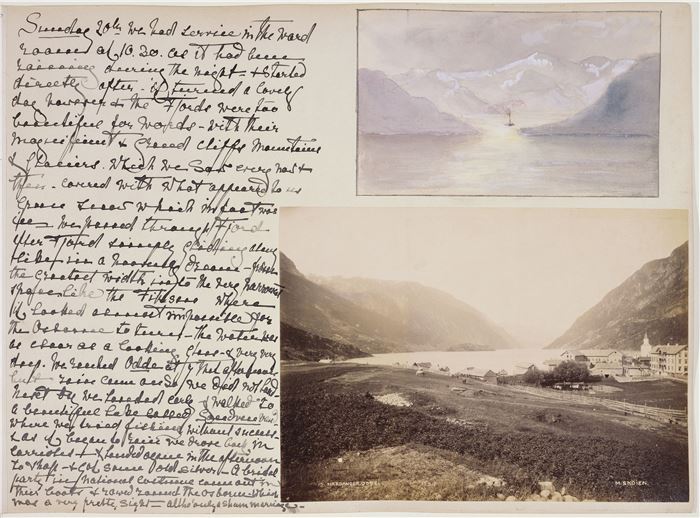 Sunday 20th we had service in the ward
roomed at 10.30. as it had been
raining during the night - & started
directly after - it turned a lovely
day however & the Fjords were too
beautiful for words - with their
magnificent & Grand cliffs Mountains
& Glaciers. Which we saw every now &
then - covered with what appeared to us
Green snow which in fact was
ice - We passed through Fjord
after Fjord simply gliding along
like in a heavenly dream - from
the Greatest width into the very narrowest
space like the where
it looked almost impossible for
the Osborne to turn - the water was
as clear as a looking Glass - & very very
deep. We reached Odde at 4 that afternoon -
but rain came and we did not land
next day we landed early & walked to
a beautiful Lake called
where we tried fishing without success
as it began to rain we drove back in
carrioles & landed again in the afternoon
to shop - & Got some old silver - A bridal
party in national costume came out in
their boats & rowed round the Osborne which
was a very pretty sight - altho' only a sham marriage -
HARDANGER. ODDE.
M. SKÖIEN.